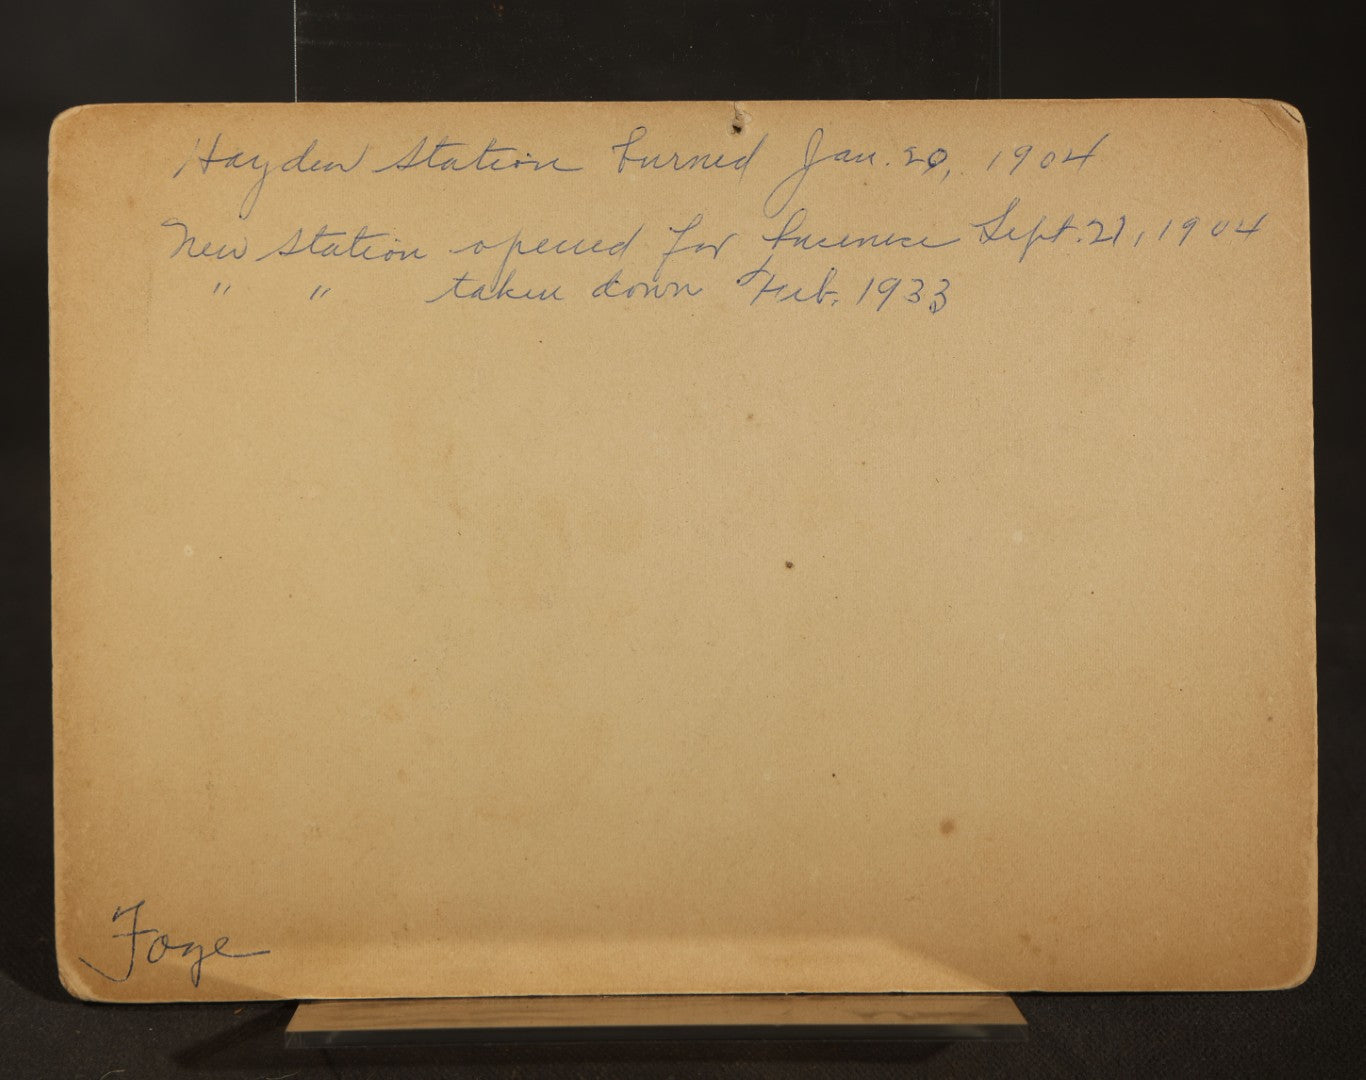 Hayden Station burned Jan. 20, 1904
New Station opened for business Sept. 21, 1904
" " taken down Feb. 1933
Foye